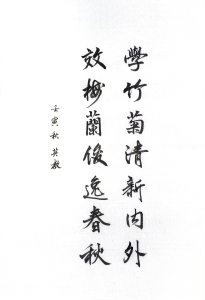 學竹菊清新內外
效梅蘭俊逸春秋
壬寅秋 英毅